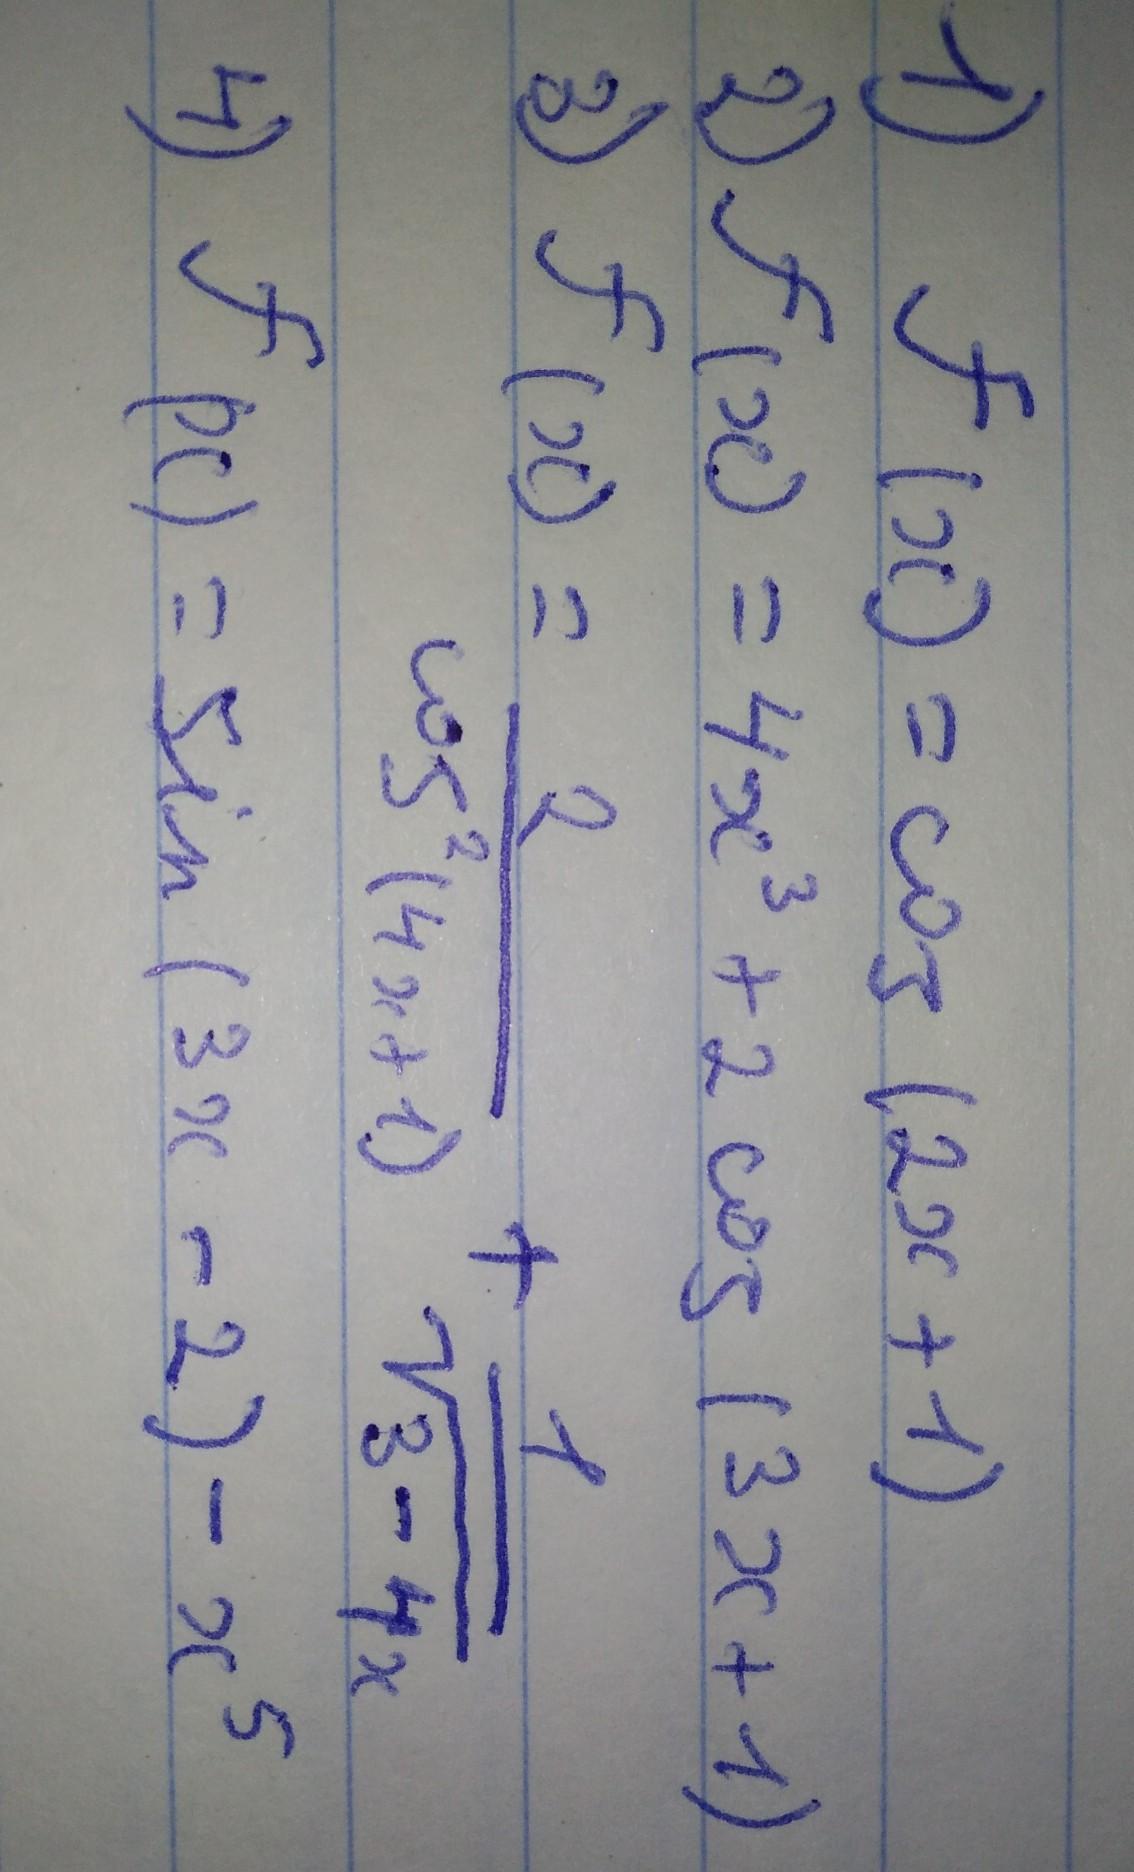 1) f(x) = cos(2x+1)
2) f(x) = 4x³ + 2cos(3x+1)
3) f(x) = 2/cos²(4x+1) + 1/√(3-4x)
4) f(x) = sin(3x-2) - x⁵